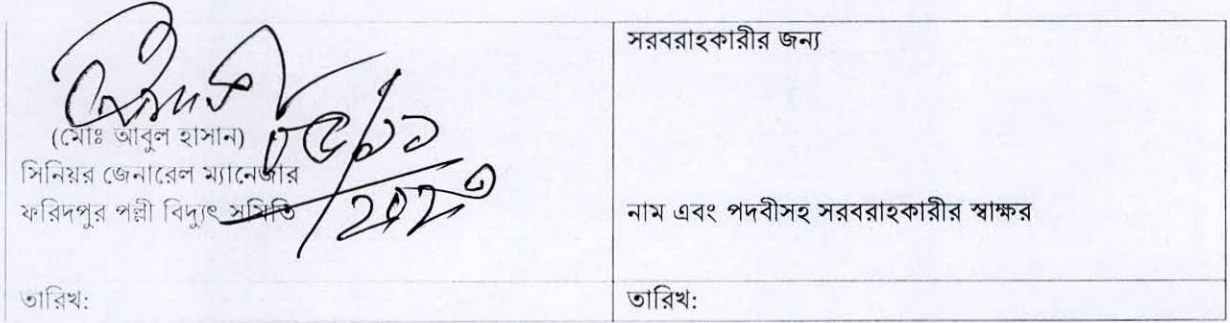 (মোঃ আবুল হাসান)
সিনিয়র জেনারেল ম্যানেজার
ফরিদপুর পল্লী বিদ্যুৎ সমিতি
তারিখ:
সরবরাহকারীর জন্য
নাম এবং পদবীসহ সরবরাহকারীর স্বাক্ষর
তারিখ: